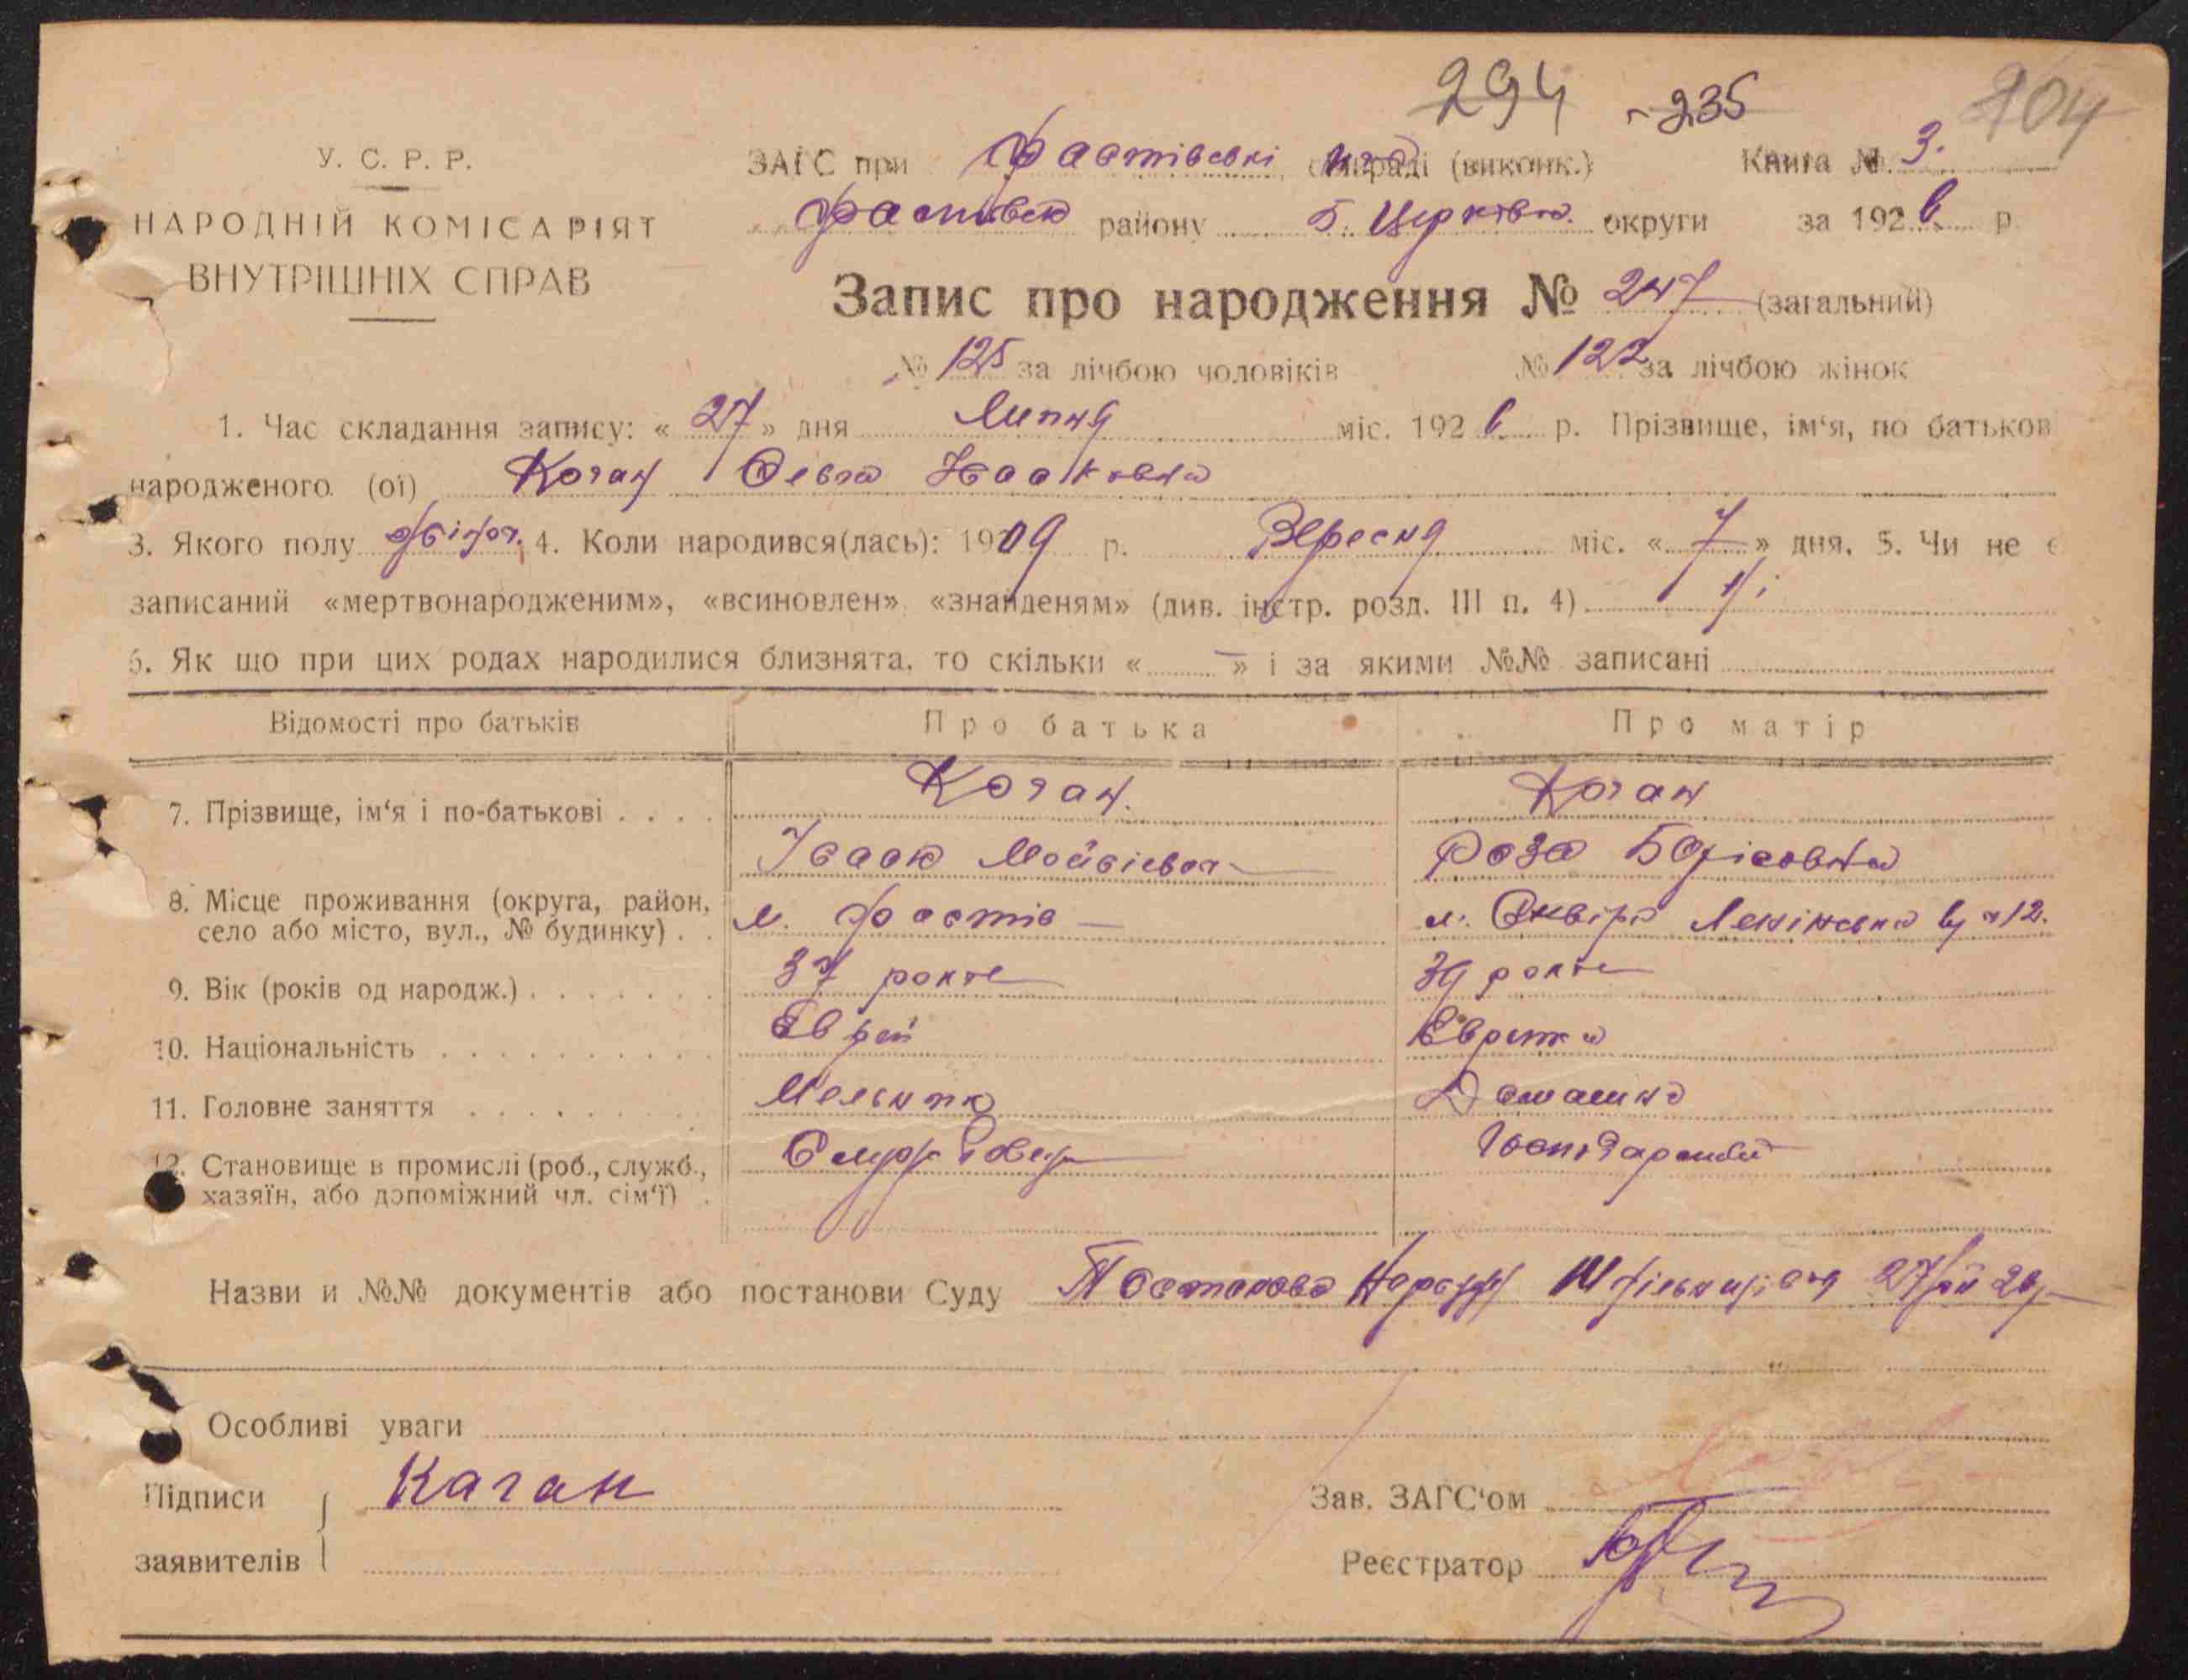 294 - 235 204
У. С. Р. Р.
НАРОДНІЙ КОМІСАРІЯТ
ВНУТРІШНІХ СПРАВ
ЗАГС при Фастівські (виконк.) Книга № 3.
Фастівськ району Б. Церківськ. округи за 1926 р.
Запис про народження № 247 (загальний)
№ 125 за лічбою чоловіків № 122 за лічбою жінок
1. Час складання запису: « 27 » дня Липня міс. 1926 р. Прізвище, ім'я, по батьков
народженого (ої) Коган Ісааковна
3. Якого полу 4. Коли народився(лась): 1909 р. Вересня міс. « 7 » дня. 5. Чи не є
записаний «мертвонародженим», «всиновлен» «знайденям» (див. інстр. розд. III п. 4) Ні
6. Як що при цих родах народилися близнята, то скільки « — » і за якими №№ записані
Відомості про батьків Про батька Про матір
7. Прізвище, ім'я і по-батькові . . . . Коган. Коган
Ісаак Мойсієвич Роза Борісовна
8. Місце проживання (округа, район, село або місто, вул., № будинку) . . м. Фастів — м. Сквіра Ленінська в № 12.
9. Вік (років од народж.) . . . . . . . 37 років 39 років
10. Національність . . . . . . . . . . Єврей Єврейка
11. Головне заняття . . . . . . . . . Мельник Домашнє
12. Становище в промислі (роб., служб., хазяїн, або допоміжний чл. сім'ї) .
Назви и №№ документів або постанови Суду Постанова Нарсуду
Особливі уваги
Підписи Каган Зав. ЗАГС'ом
заявителів Реєстратор